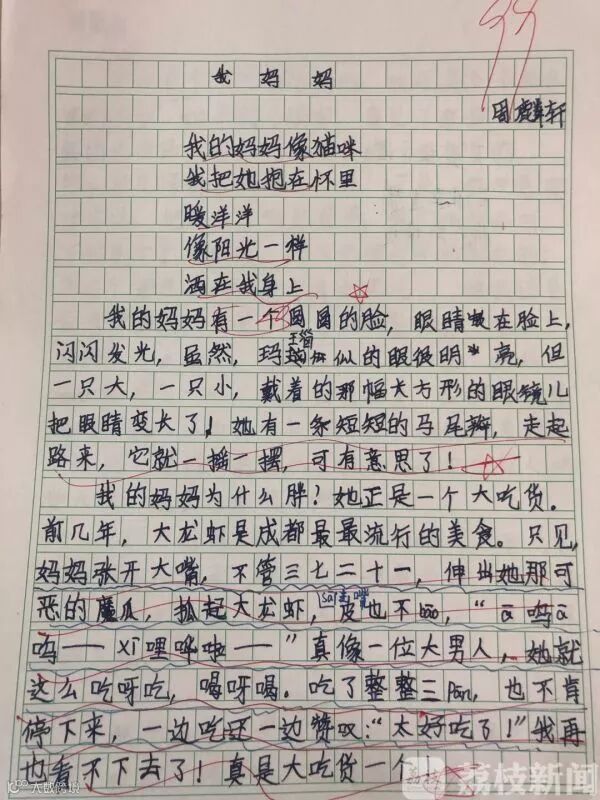 99
我妈妈
周麟轩
我的妈妈像猫咪
我把她抱在怀里
暖洋洋
像阳光一样
洒在我身上
我的妈妈有一个圆圆的脸，眼睛嵌在脸上，
闪闪发光，虽然，玛瑙似的眼很明亮，但
一只大，一只小，戴着的那幅大方形的眼镜儿
把眼睛变长了！她有一条短短的马尾辫，走起
路来，它就一摇一摆，可有意思了！
我的妈妈为什么胖？她正是一个大吃货。
前几年，大龙虾是成都最最流行的美食。只见，
妈妈张开大嘴，不管三七二十一，伸出她那可
恶的魔爪，抓起大龙虾，皮也不bāo，“ā呜ā
呜——xī哩哗啦——”真像一位大男人，她就
这么吃呀吃，喝呀喝。吃了整整三pán，也不肯
停下来，一边吃还一边赞叹：“太好吃了！”我再
也看不下去了！真是大吃货一个
大数跨境
荔枝新闻